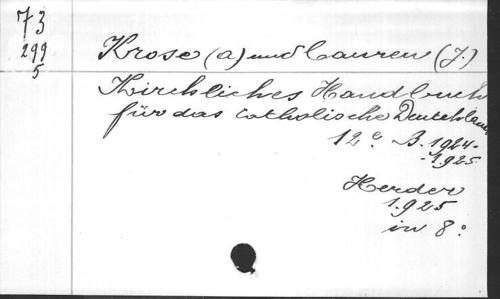 73
299
5
Krose (a) und Lauren (J.)
Kirchliches Handbuch
für das catholische Deutschland
12e B. 1924-
-1925
Herder
1925
in 8º